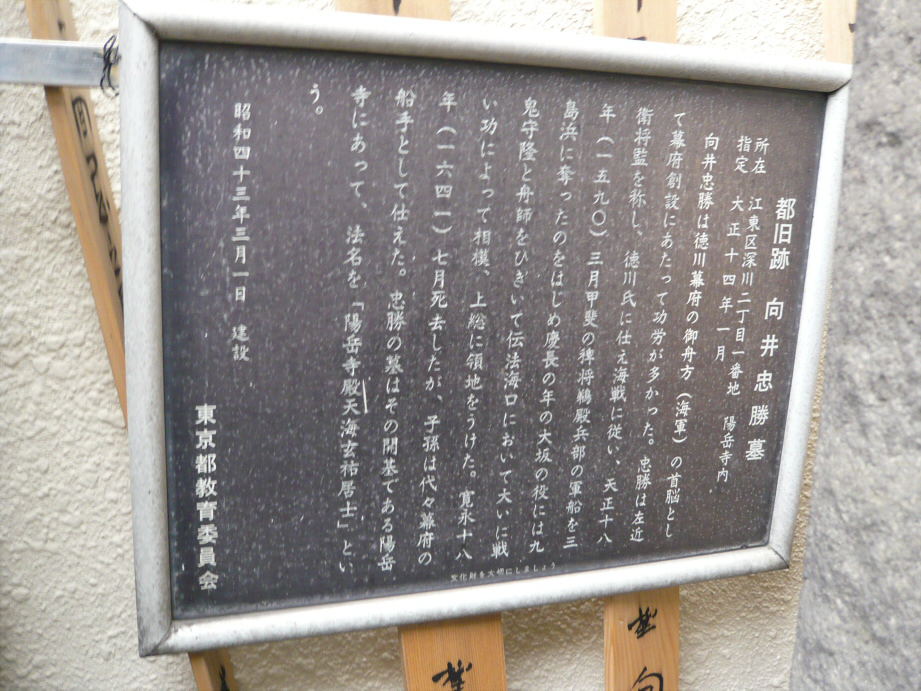 都旧跡 向井忠勝墓
所在 江東区深川二丁目一番地 陽岳寺内
指定 大正十四年一月
向井忠勝は徳川幕府の御舟方(海軍)の首脳とし
て幕府創設にあたって功労が多かった。忠勝は左近
衛将監を称し、徳川氏に仕え海戦に従い、天正十八
年(一五九〇)三月甲斐の稗将鵜殿兵部の軍船を三
島浜に奪ったのをはじめ慶長の年の大坂の役には九
鬼守隆と舟師をひきいて伝法海口において大いに戦
い功によって相模、上総に領地をうけた。寛永十八
年(一六四一)七月死去したが、子孫は代々幕府の
船手として仕えた。忠勝の墓はその開基である陽岳
寺にあって、法名を「陽岳寺殿天海玄祐居士」とい
う。
昭和四十三年三月一日 建設
東京都教育委員会
文化財を大切にしましょう